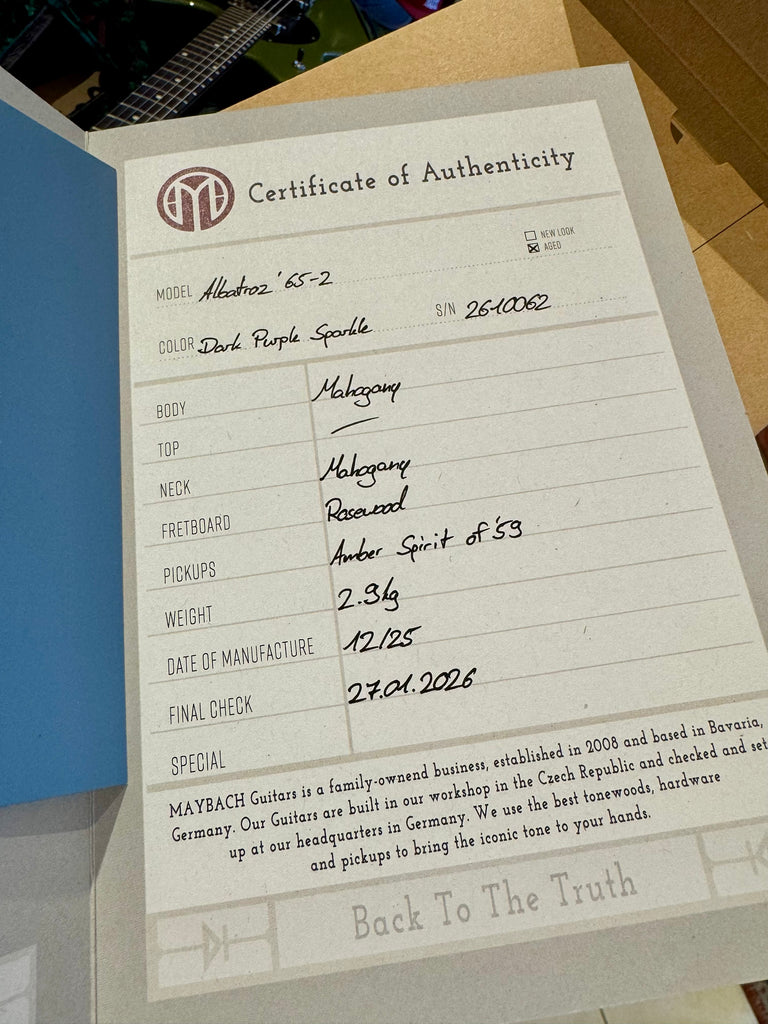 Certificate of Authenticity
NEW LOOK
AGED
MODEL Albatroz '65-2
COLOR Dark Purple Sparkle S/N 2610062
BODY Mahogany
TOP —
NECK Mahogany
FRETBOARD Rosewood
PICKUPS Amber Spirit of '59
WEIGHT 2.9kg
DATE OF MANUFACTURE 12/25
FINAL CHECK 27.01.2026
SPECIAL
MAYBACH Guitars is a family-ownend business, established in 2008 and based in Bavaria,
Germany. Our Guitars are built in our workshop in the Czech Republic and checked and set
up at our headquarters in Germany. We use the best tonewoods, hardware
and pickups to bring the iconic tone to your hands.
Back To The Truth